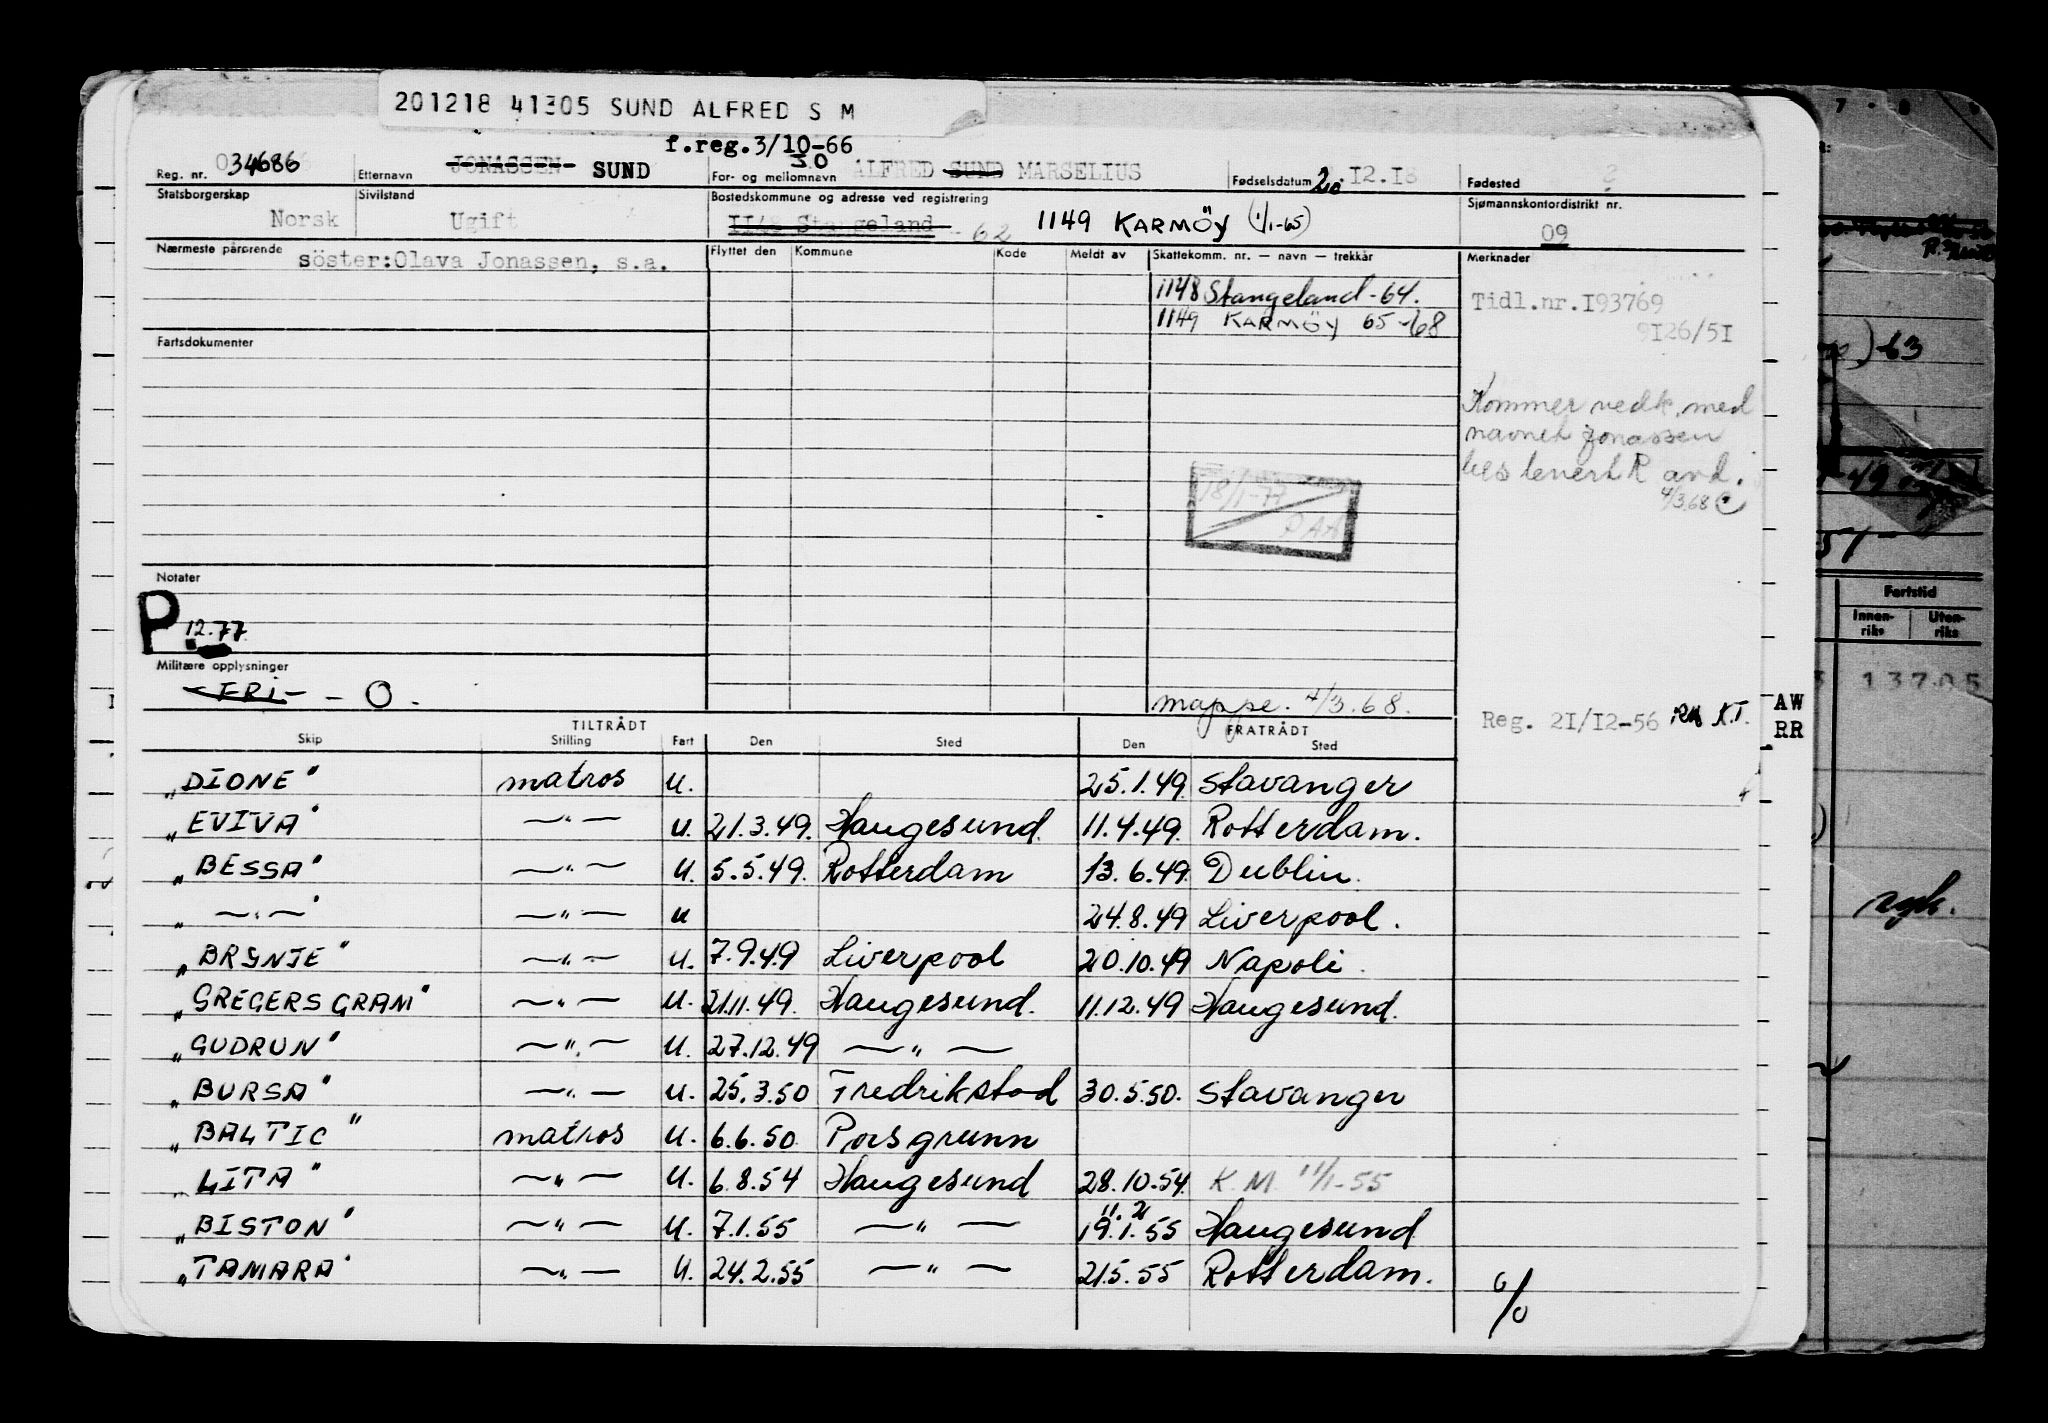 201218 41305 SUND ALFRED S M
f.reg.3/10-66
Reg. nr. 034686 Etternavn JONASSEN SUND For- og mellomnavn ALFRED SUND MARSELIUS Fødselsdatum 20.12.18 Fødested ?
Statsborgerskap Sivilstand Bostedskommune og adresse ved registrering Sjømannskontordistrikt nr.
Norsk Ugift 1148 Stangeland - 62 1149 KARMÖY (1/1-65) 09
Nærmeste pårørende söster:Olava Jonassen, s.a. Flyttet den Kommune Kode Meldt av Skattekomm. nr. — navn — trekkår Merknader
1148 Stangeland - 64. Tidl.nr.I93769
1149 KARMÖY 65-68 9I26/5I
Fartsdokumenter
Kommer vedk. med
navnet Jonassen
4/3.68
18/1-77
Notater
P 12.77
Militære opplysninger
FRI - O.
mappe. 4/3.68.
Reg. 2I/I2-56 AW
RR
TILTRÅDT FRATRÅDT
Skip Stilling Fart Den Sted Den Sted
"DIONE" matros U. 25.1.49. Stavanger
"EVIVA" —"— U. 21.3.49. Haugesund. 11.4.49. Rotterdam.
"BESSA" —"— U. 5.5.49. Rotterdam 13.6.49 Dublin.
"—"—" —"— U 24.8.49 Liverpool.
"BRYNJE" —"— U. 7.9.49 Liverpool 20.10.49 Napoli.
"GREGERS GRAM" —"— U. 21.11.49. Haugesund. 11.12.49 Haugesund.
"GUDRUN" —"— U. 27.12.49 —"—
"BURSA" —"— U. 25.3.50 Fredrikstad 30.5.50. Stavanger
"BALTIC" matros U. 6.6.50. Porsgrunn
"LITA" —"— U. 6.8.54 Haugesund 28.10.54. K.M. 11/1-55
"BISTON" —"— U. 7.1.55 —"— 19.1.55 Haugesund
"TAMARA" —"— U. 24.2.55 —"— 21.5.55 Rotterdam.
)-63
49
Fartstid
Innen-
riks
Uten-
riks
13705